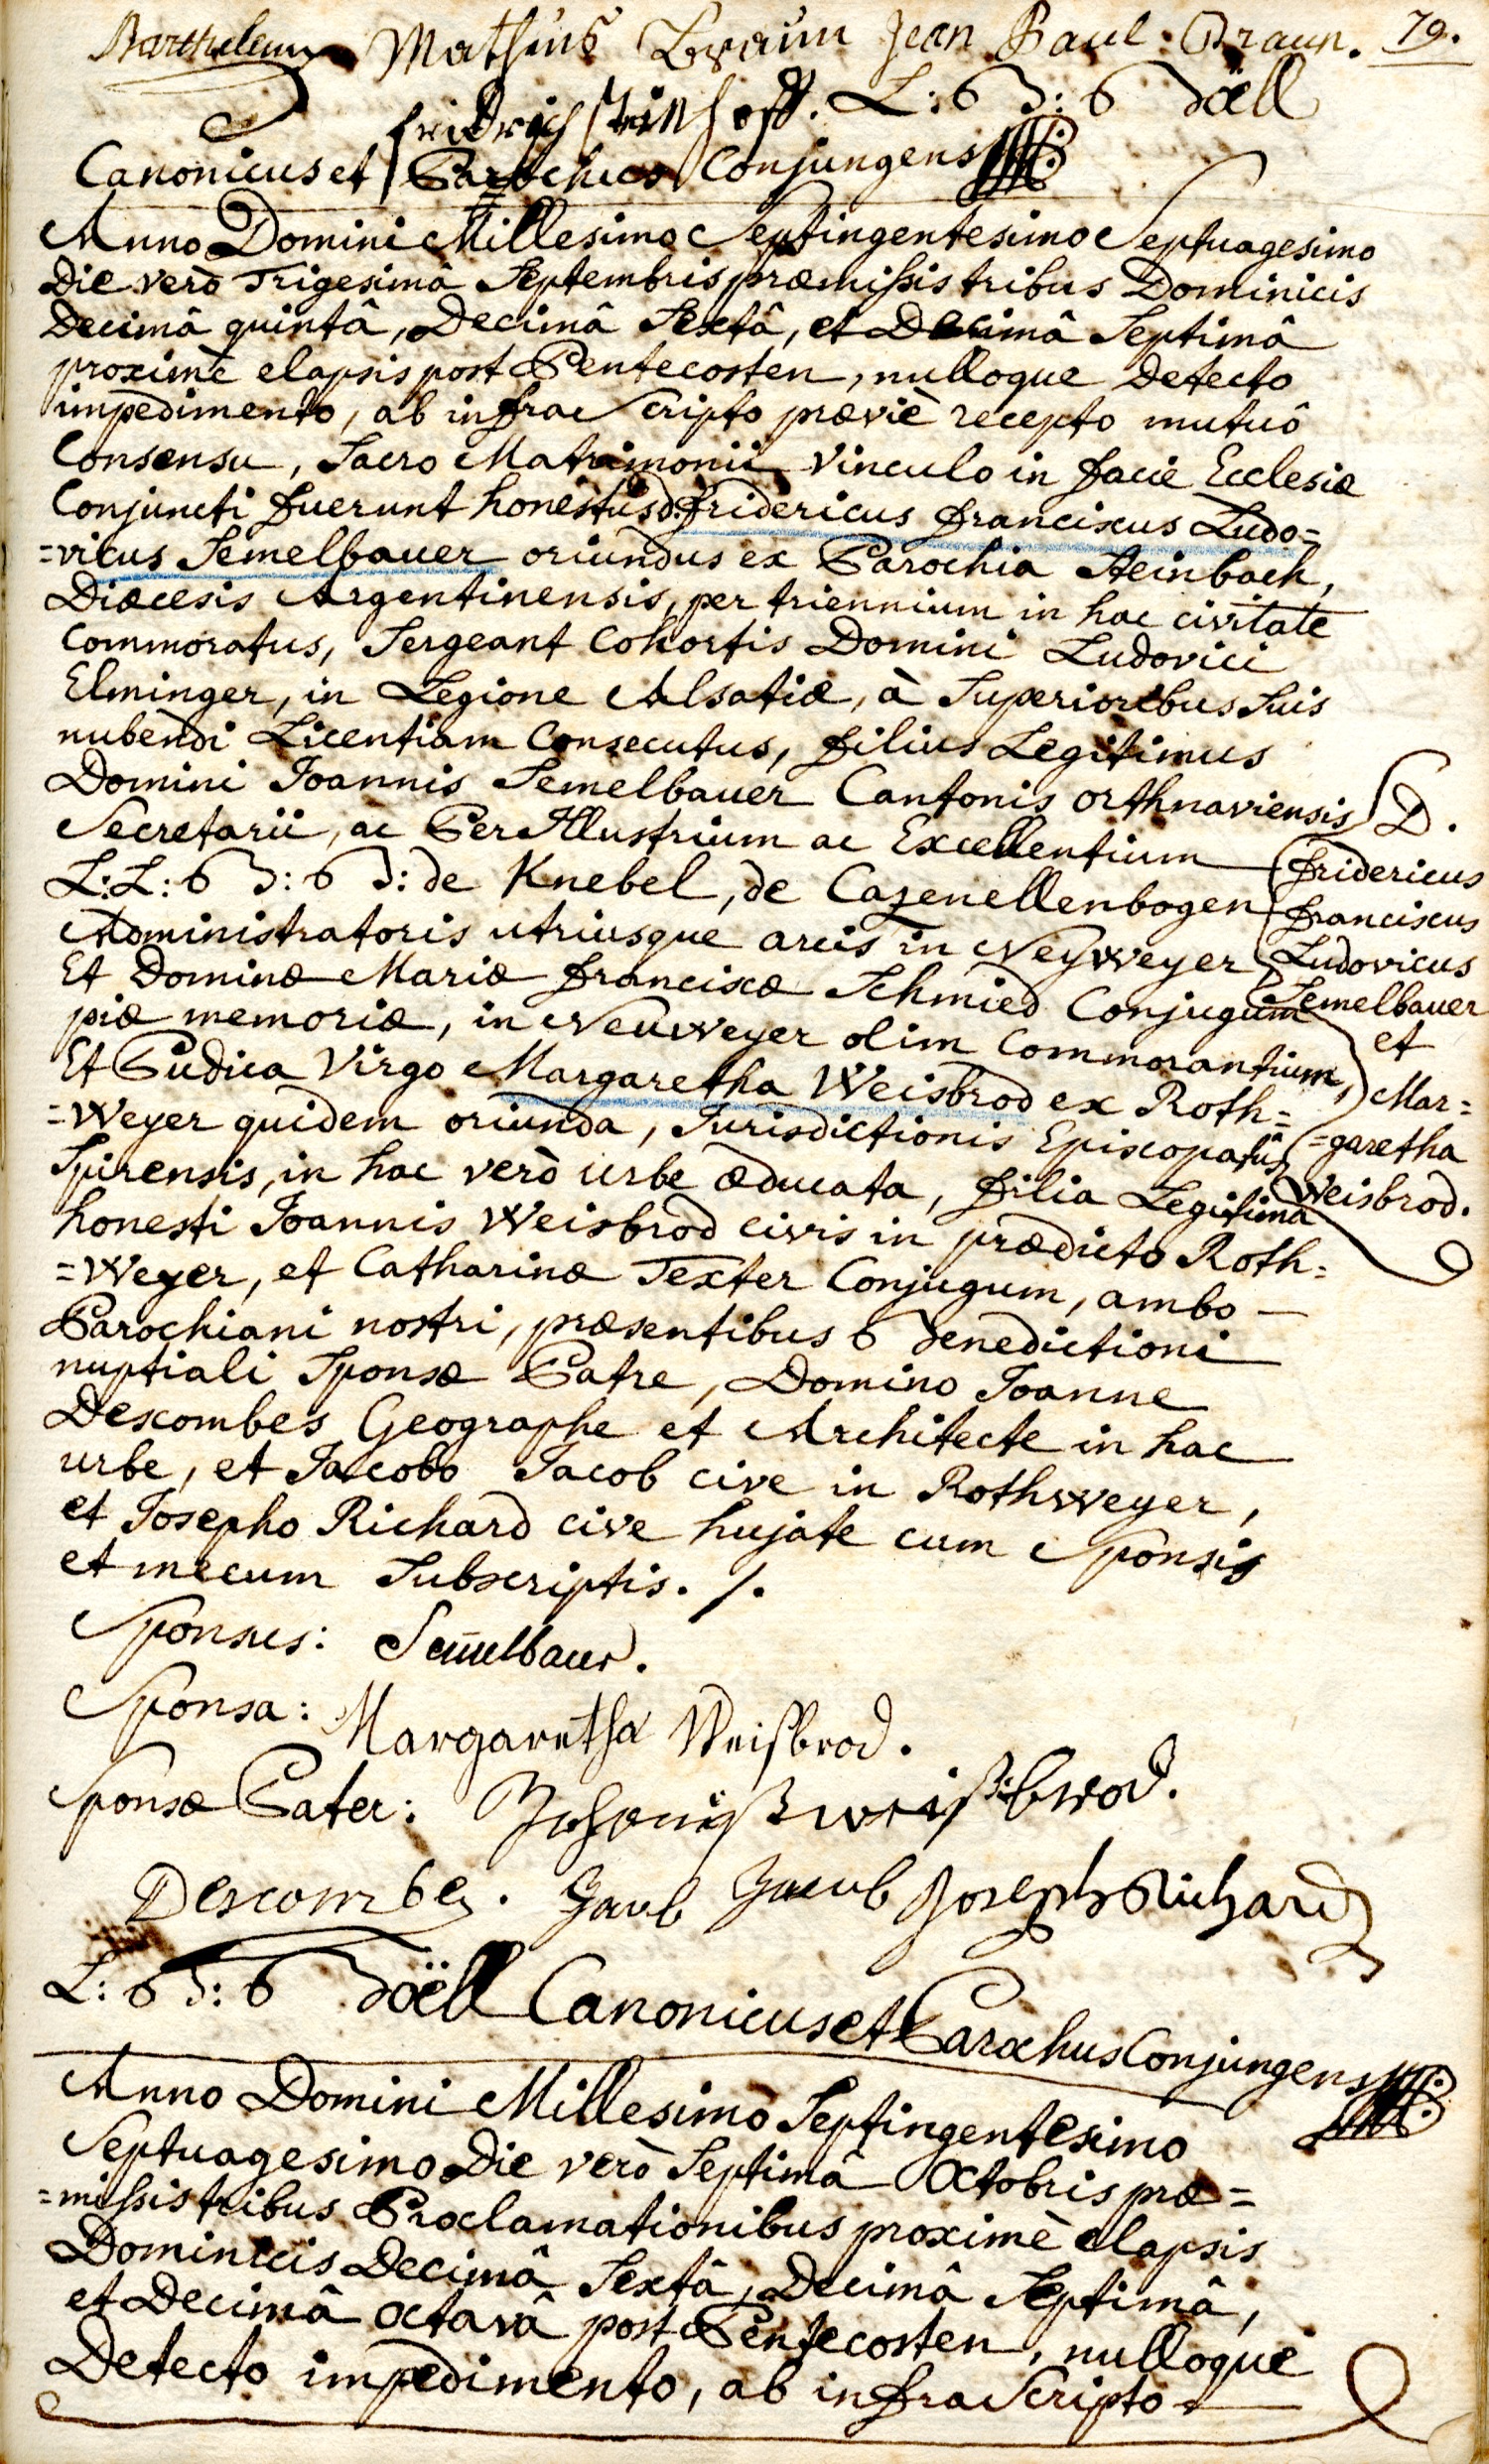 Barthelemy Mathius Braun Jean Paul Braun. 79.
fridrich Steinhoff. L: B: B Böell
Canonicus et Parochus Conjungens
Anno Domini Millesimo Septingentesimo Septuagesimo
Die verò Trigesimâ Septembris præmissis tribus Dominicis
Decimâ quintâ, Decimâ Sextâ, et Decimâ Septimâ
proximè elapsis post Pentecosten, nulloque Detecto
impedimento, ab infra Scripto præviè recepto mutuô
Consensu, Sacro Matrimonii Vinculo in facie Ecclesiæ
Conjuncti fuerunt honestus d. fridericus franciscus Ludo=
=vicus Semelbauer oriundus ex Parochia Steinbach,
Diæcesis Argentinensis, per triennium in hac civitate
Commoratus, Sergeant Cohortis Domini Ludovici
Elminger, in Legione Alsatiæ, à Superioribus Suis
nubendi Licentiam Consecutus, filius Legitimus
Domini Joannis Semelbauer Cantonis orthnaviensis
Secretarii, ac Per Illustrium ac Excellentium
L: L: B B: B B: de Knebel, de Cazenellenbogen
Administratoris utriusque arcis in Neyweyer
Et Dominæ Mariæ franciscæ Schmied Conjugum
piæ memoriæ, in Neuweyer olim Commorantium,
Et Pudica Virgo Margaretha Weisbrod ex Roth=
=Weyer quidem oriunda, Jurisdictionis Episcopatûs
Spirensis, in hac verò urbe æducata, filia Legitima
honesti Joannis Weisbrod civis in prædicto Roth=
=Weyer, et Catharinæ Texter Conjugum, ambo
Parochiani nostri, præsentibus Benedictioni
nuptiali Sponsæ Patre, Domino Joanne
Descombes Geographe et Architecte in hac
urbe, et Jacobo Jacob cive in Rothweyer,
et Josepho Richard cive hujate cum Sponsis
et mecum Subscriptis. /.
D.
fridericus
franciscus
Ludovicus
Semelbauer
et
Mar=
=garetha
Weisbrod.
Sponsus: Sem̄elbauer.
Sponsa: Margaretha Weißbrod.
Sponsæ Pater: Johaniß weißbrod.
Descombes. Jacob Jacob Joseph Richard
L: B: B Böell Canonicus et Parochus Conjungens
Anno Domini Millesimo Septingentesimo
Septuagesimo Die verò Septimâ Octobris præ=
=missis tribus Proclamationibus proximè elapsis
Dominicis Decimâ Sextâ, Decimâ Septimâ,
et Decimâ Octavâ post Pentecosten, nulloque
Detecto impedimento, ab infra Scripto